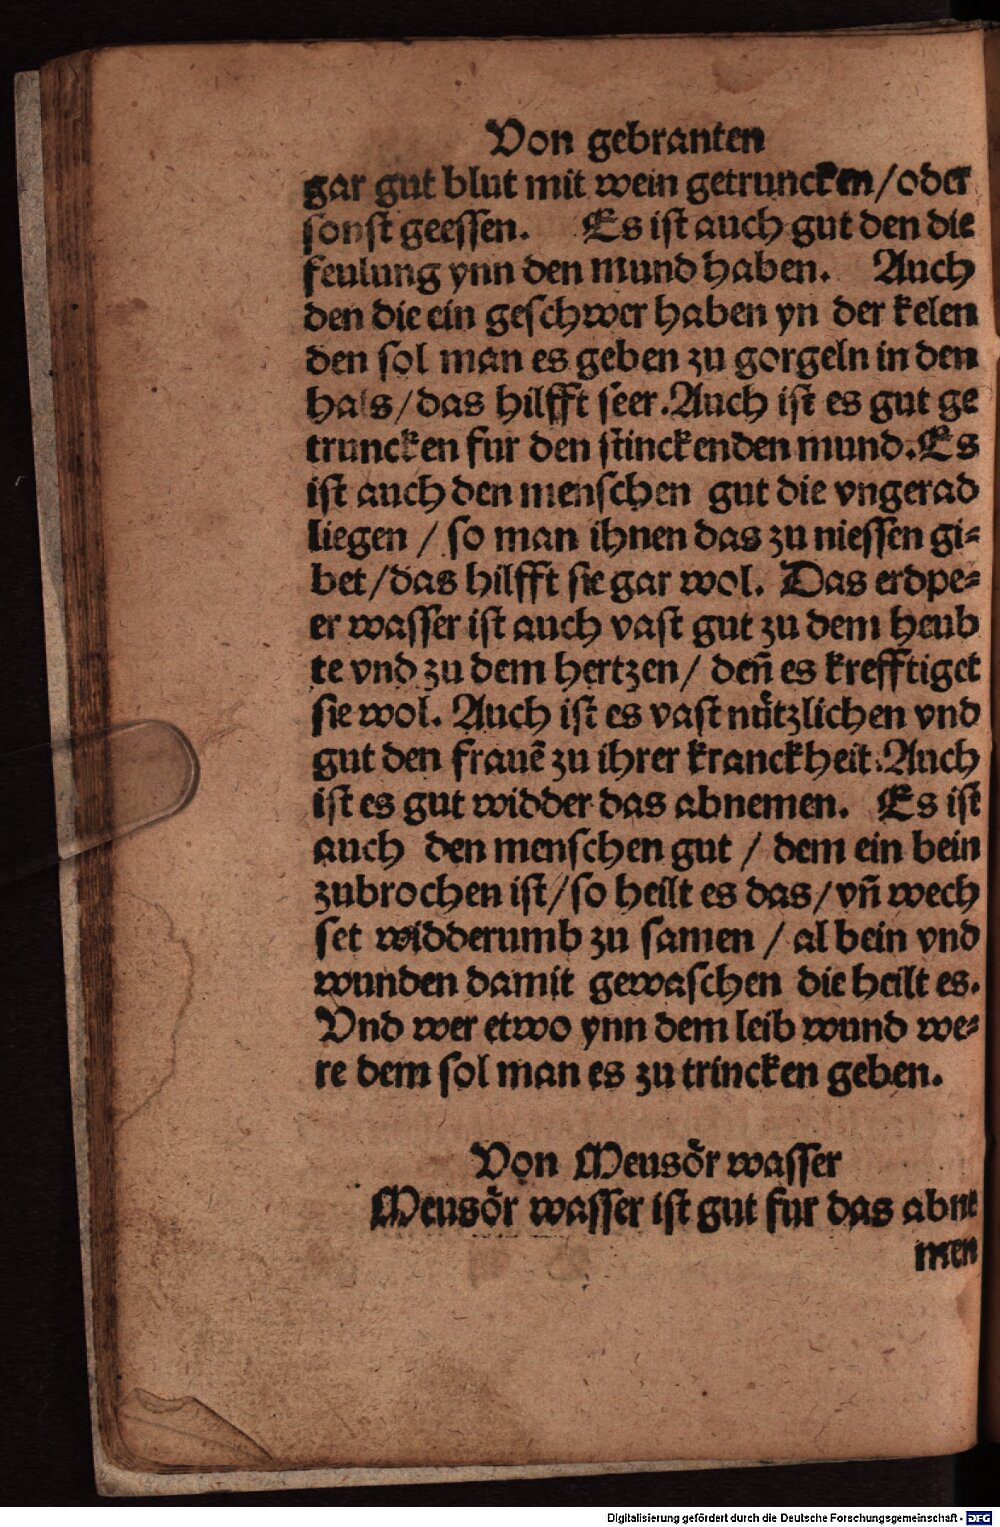 Von gebranten
gar gut blut mit wein getruncken/oder
sonst geessen. Es ist auch gut den die
feulung ynn den mund haben. Auch
den die ein geschwer haben yn der kelen
den sol man es geben zu gorgeln in den
hals/das hilfft seer.Auch ist es gut ge
truncken fur den stinckenden mund.Es
ist auch den menschen gut die vngerad
liegen / so man ihnen das zu niessen gi⸗
bet/das hilfft sie gar wol. Das erdpe⸗
er wasser ist auch vast gut zu dem heub
te vnd zu dem hertzen/ deñ es krefftiget
sie wol. Auch ist es vast nuͤtzlichen vnd
gut den frauẽ zu ihrer kranckheit.Auch
ist es gut widder das abnemen. Es ist
auch den menschen gut / dem ein bein
zubrochen ist/so heilt es das/vñ wech
set widderumb zu samen / al bein vnd
wunden damit gewaschen die heilt es.
Vnd wer etwo ynn dem leib wund we⸗
re dem sol man es zu trincken geben.
Von Meusoͤr wasser
Meusoͤr wasser ist gut fur das abne
men
Digitalisierung gefördert durch die Deutsche Forschungsgemeinschaft - DFG